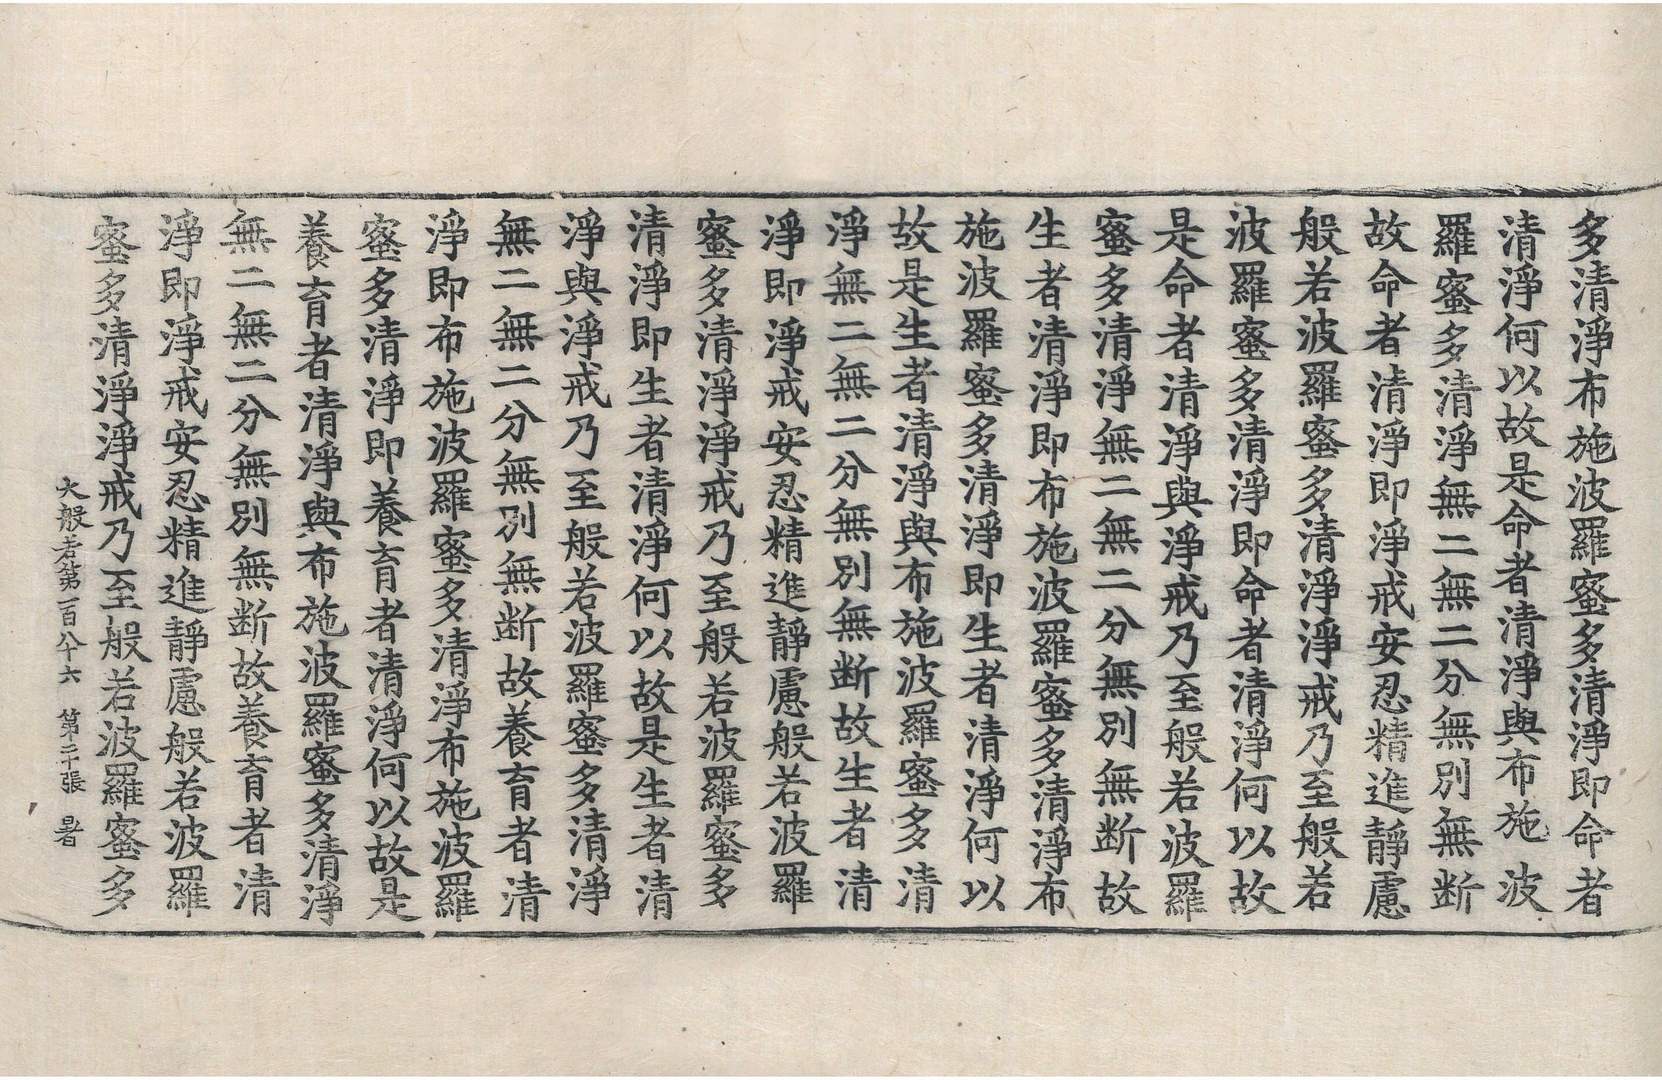 多清淨布施波羅蜜多清淨即命者
清淨何以故是命者清淨與布施波
羅蜜多清淨無二無二分無別無断
故命者清淨即淨戒安忍精進靜慮
般若波羅蜜多清淨淨戒乃至般若
波羅蜜多清淨即命者清淨何以故
是命者清淨與淨戒乃至般若波羅
蜜多清淨無二無二分無別無断故
生者清淨即布施波羅蜜多清淨布
施波羅蜜多清淨即生者清淨何以
故是生者清淨與布施波羅蜜多清
淨無二無二分無別無断故生者清
淨即淨戒安忍精進靜慮般若波羅
蜜多清淨淨戒乃至般若波羅蜜多
清淨即生者清淨何以故是生者清
淨與淨戒乃至般若波羅蜜多清淨
無二無二分無別無断故養育者清
淨即布施波羅蜜多清淨布施波羅
蜜多清淨即養育者清淨何以故是
養育者清淨與布施波羅蜜多清淨
無二無二分無別無断故養育者清
淨即淨戒安忍精進靜慮般若波羅
蜜多清淨淨戒乃至般若波羅蜜多
大般若第一百八十六 第二十張 暑